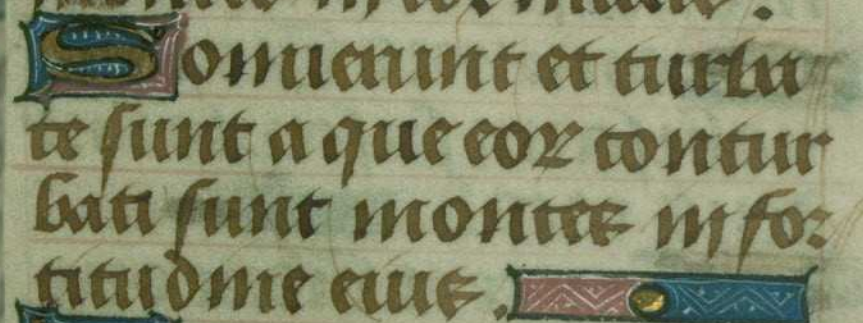 Sonuerunt et turba
te sunt a que eoꝝ contur
bati sunt montes in for
titudine eius.